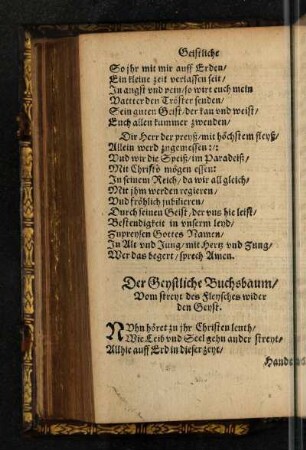 Geistliche
So jhr mit mir auff Erden/
Ein kleine zeit verlassen seit/
In angst vnd pein/so wirt euch mein
Vattter den Tröster senden/
Sein guten Geist/der kan vnd weist/
Euch allen kummer zwenden/
Dir Herr der preyß/mit höchstem fleyß/
Allein werd zugemessen:/:
Vnd wir die Speiß/im Paradeiß/
Mit Christo mögen essen:
In seinem Reich/da wir all gleich/
Mit jhm werden regieren/
Vnd fröhlich jubilieren/
Durch seinen Geist/der vns hie leist/
Bestendigkeit in vnserm leyd/
Zupreysen Gottes Namen/
In Alt vnd Jung/mit Hertz vnd Zung/
Wer das begert/sprech Amen.
Der Geystliche Buchsbaum/
Vom streyt des Fleysches wider
den Geyst.
NVhn höret zu jhr Christen leuth/
Wie Leib vnd Seel gehn ander streyt/
Allhie auff Erd in dieser zeyt/